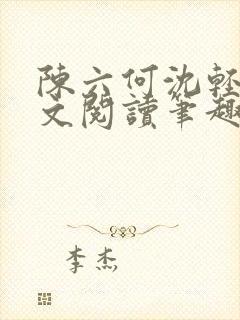 陳六何沈輕
文閱讀筆趣
李杰